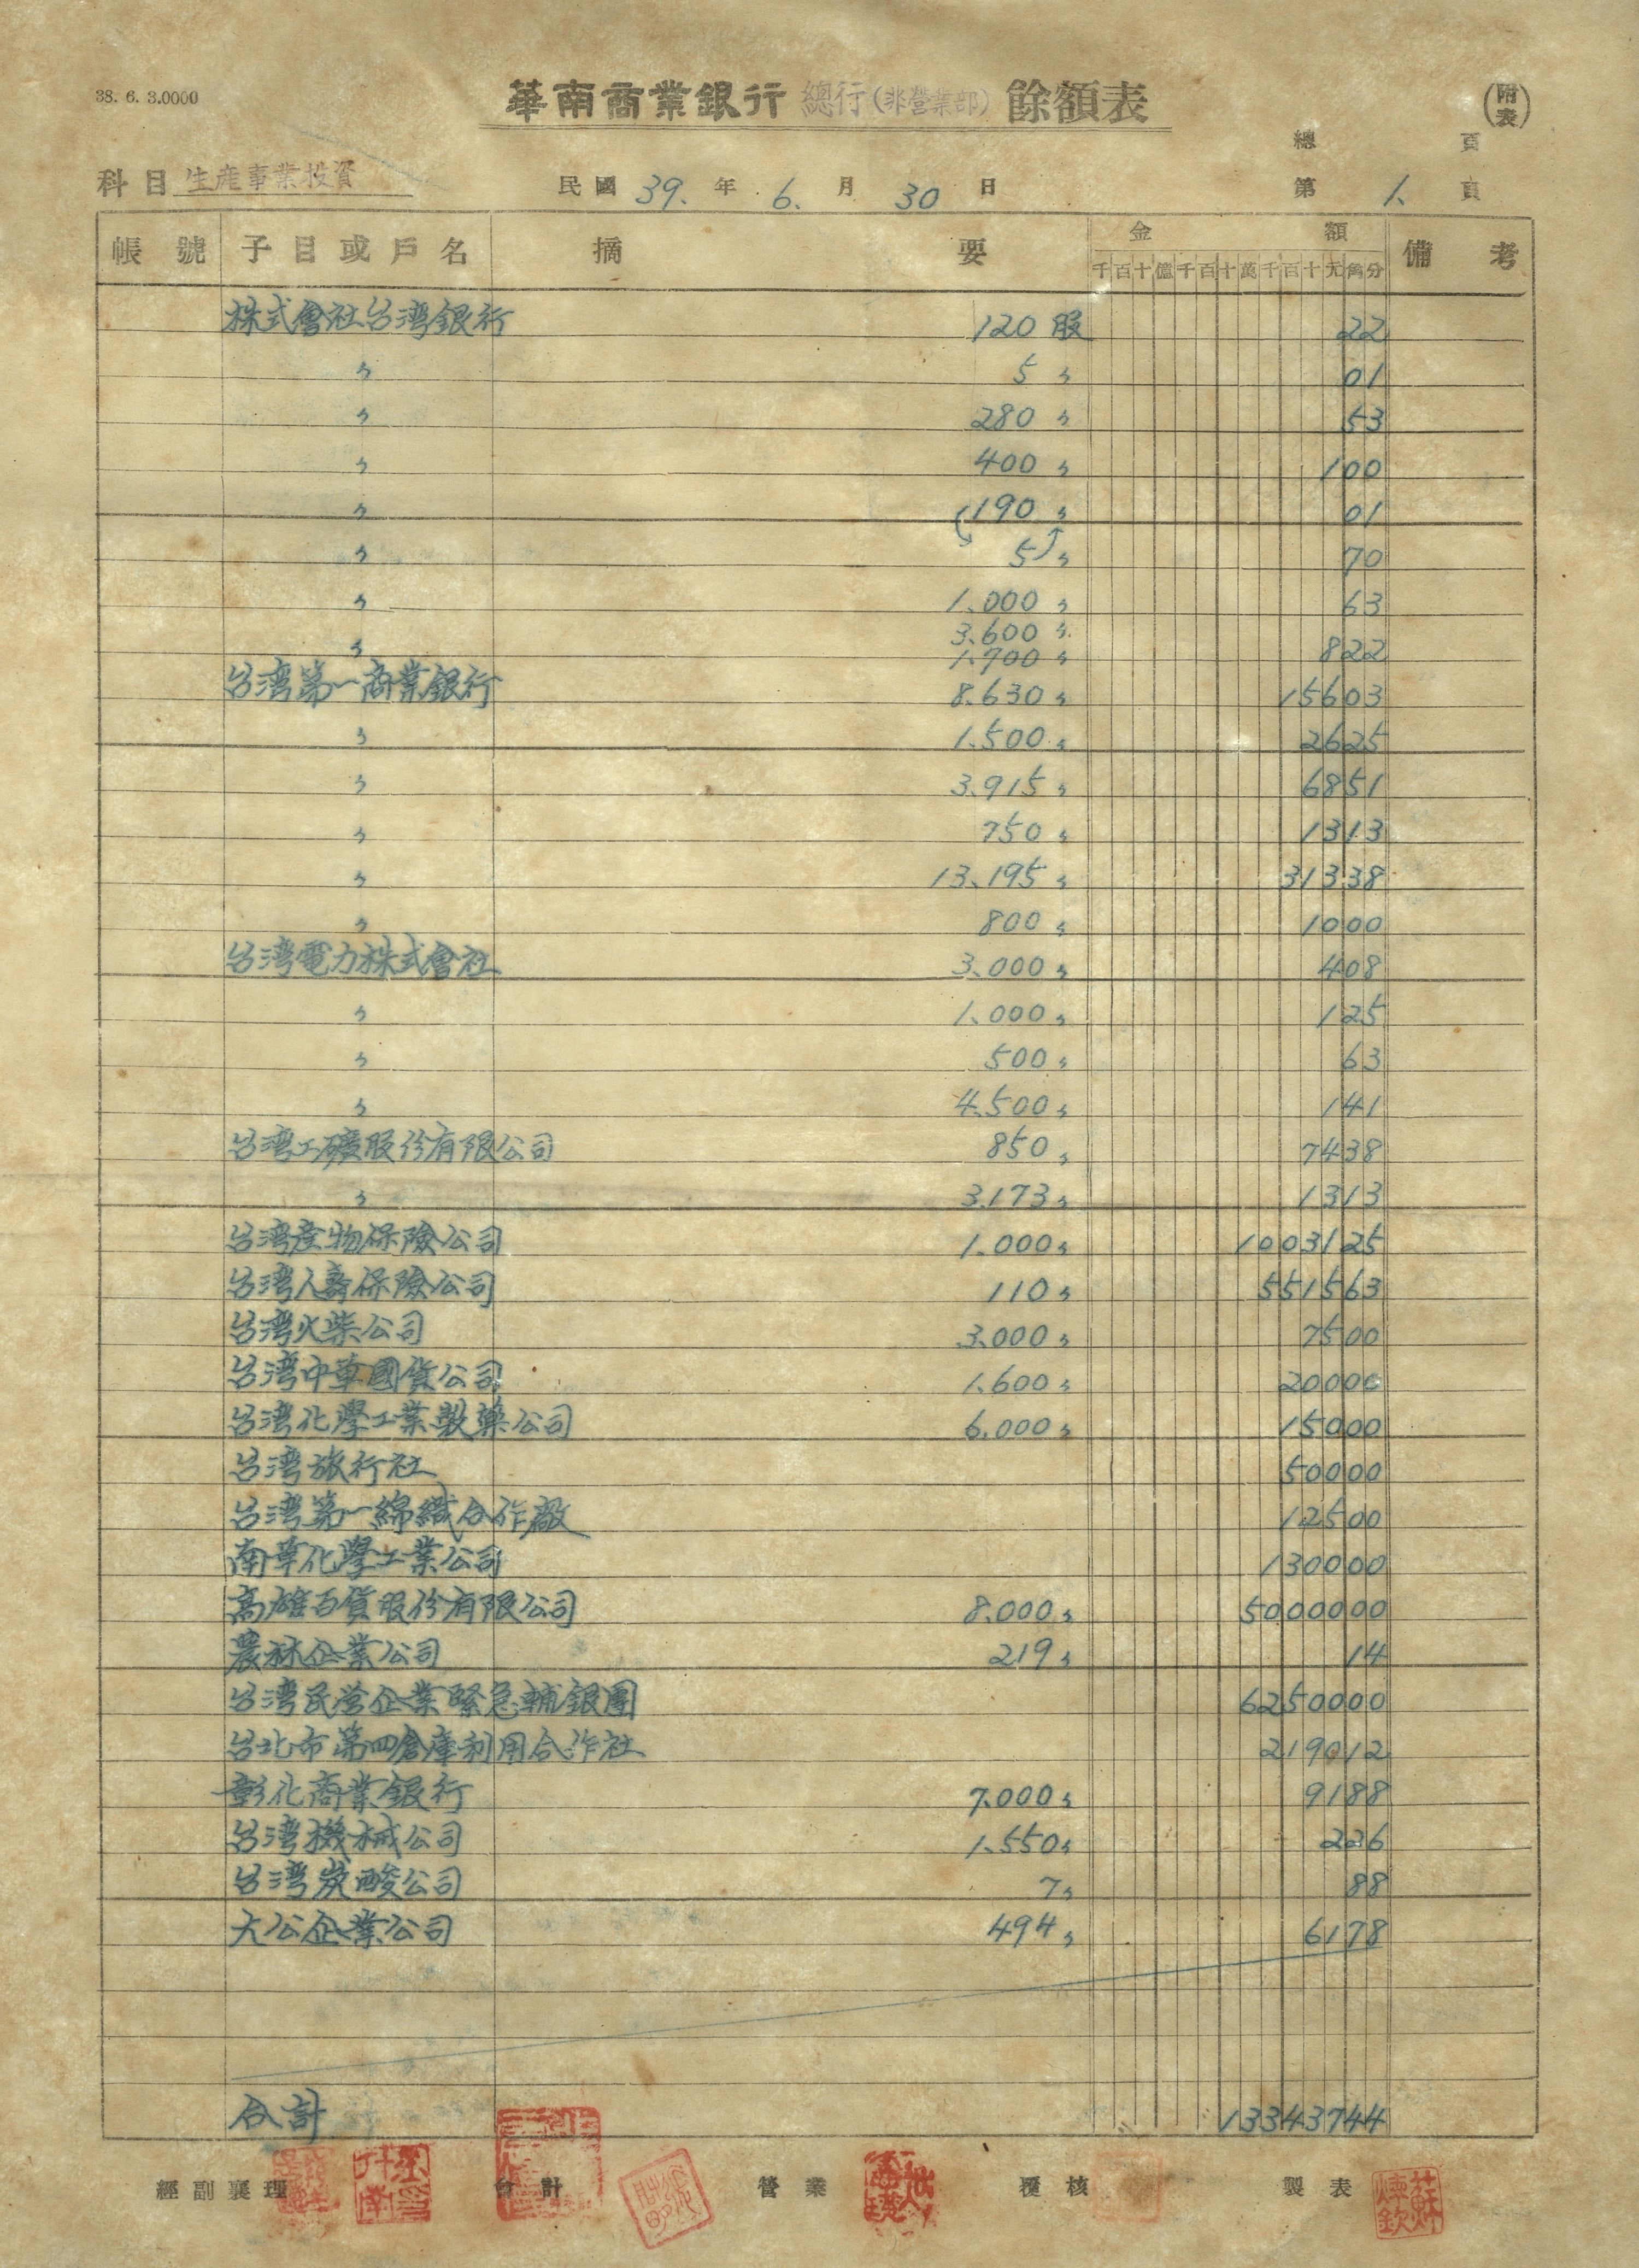 38. 6. 3.0000
華南商業銀行 總行(非營業部) 餘額表
(附表)
總 頁
科目 生産事業投資 民國 39. 年 6. 月 30 日 第 1. 頁
帳號 子目或戶名 摘要 金額 備考
千百十億千百十萬千百十元角分
株式會社台湾銀行 120 股 22
〃 5 〃 01
〃 280 〃 53
〃 400 〃 100
〃 190 〃 01
〃 5 〃 70
〃 1.000 〃 63
3.600 〃
〃 1.700 〃 822
台湾第一商業銀行 8.630 〃 15603
〃 1.500 〃 2625
〃 3.915 〃 6851
〃 750 〃 1313
〃 13.195 〃 31338
〃 800 〃 1000
台湾電力株式會社 3.000 〃 408
〃 1.000 〃 125
〃 500 〃 63
〃 4.500 〃 141
台湾工礦股份有限公司 850 〃 7438
〃 3.173 〃 1313
台湾産物保險公司 1.000 〃 1003125
台湾人壽保險公司 110 〃 551563
台湾火柴公司 3.000 〃 7500
台湾中華國貨公司 1.600 〃 20000
台湾化學工業製藥公司 6.000 〃 15000
台湾旅行社 50000
台湾第一綿織合作廠 12500
南華化學工業公司 130000
高雄百貨股份有限公司 8.000 〃 5000000
農林企業公司 219 〃 14
台湾民営企業緊急輔銀團 6250000
台北市第四倉庫利用合作社 219012
彰化商業銀行 7.000 〃 9188
台湾機械公司 1.550 〃 226
台湾炭酸公司 7 〃 88
大公企業公司 494 〃 6178
合計 13343744
經副襄理 會計 營業 覆核 製表
蘇煉欽